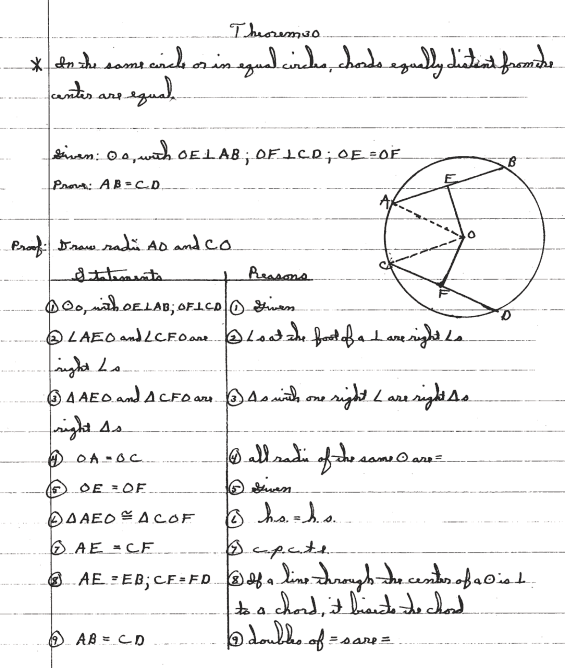 Theorem 30
* In the same circle or in equal circles, chords equally distint from the
center are equal.
Given: ⊙O, with OE⊥AB; OF⊥CD; OE=OF
Prove: AB=CD
B
E
A
O
C
F
D
Proof: Draw radii AO and CO
Statements Reasons
① ⊙O, with OE⊥AB; OF⊥CD ① Given
② ∠AEO and ∠CFO are ② ∠s at the foot of a ⊥ are right ∠s
right ∠s
③ △AEO and △CFO are ③ △s with one right ∠ are right △s
right △s
④ OA=OC ④ all radii of the same ⊙ are =
⑤ OE=OF ⑤ Given
⑥ △AEO ≅ △COF ⑥ h.s. = h.s.
⑦ AE = CF ⑦ c.p.c.t.e.
⑧ AE=EB; CF=FD ⑧ If a line through the center of a ⊙ is ⊥
to a chord, it bisects the chord
⑨ AB=CD ⑨ doubles of =s are =